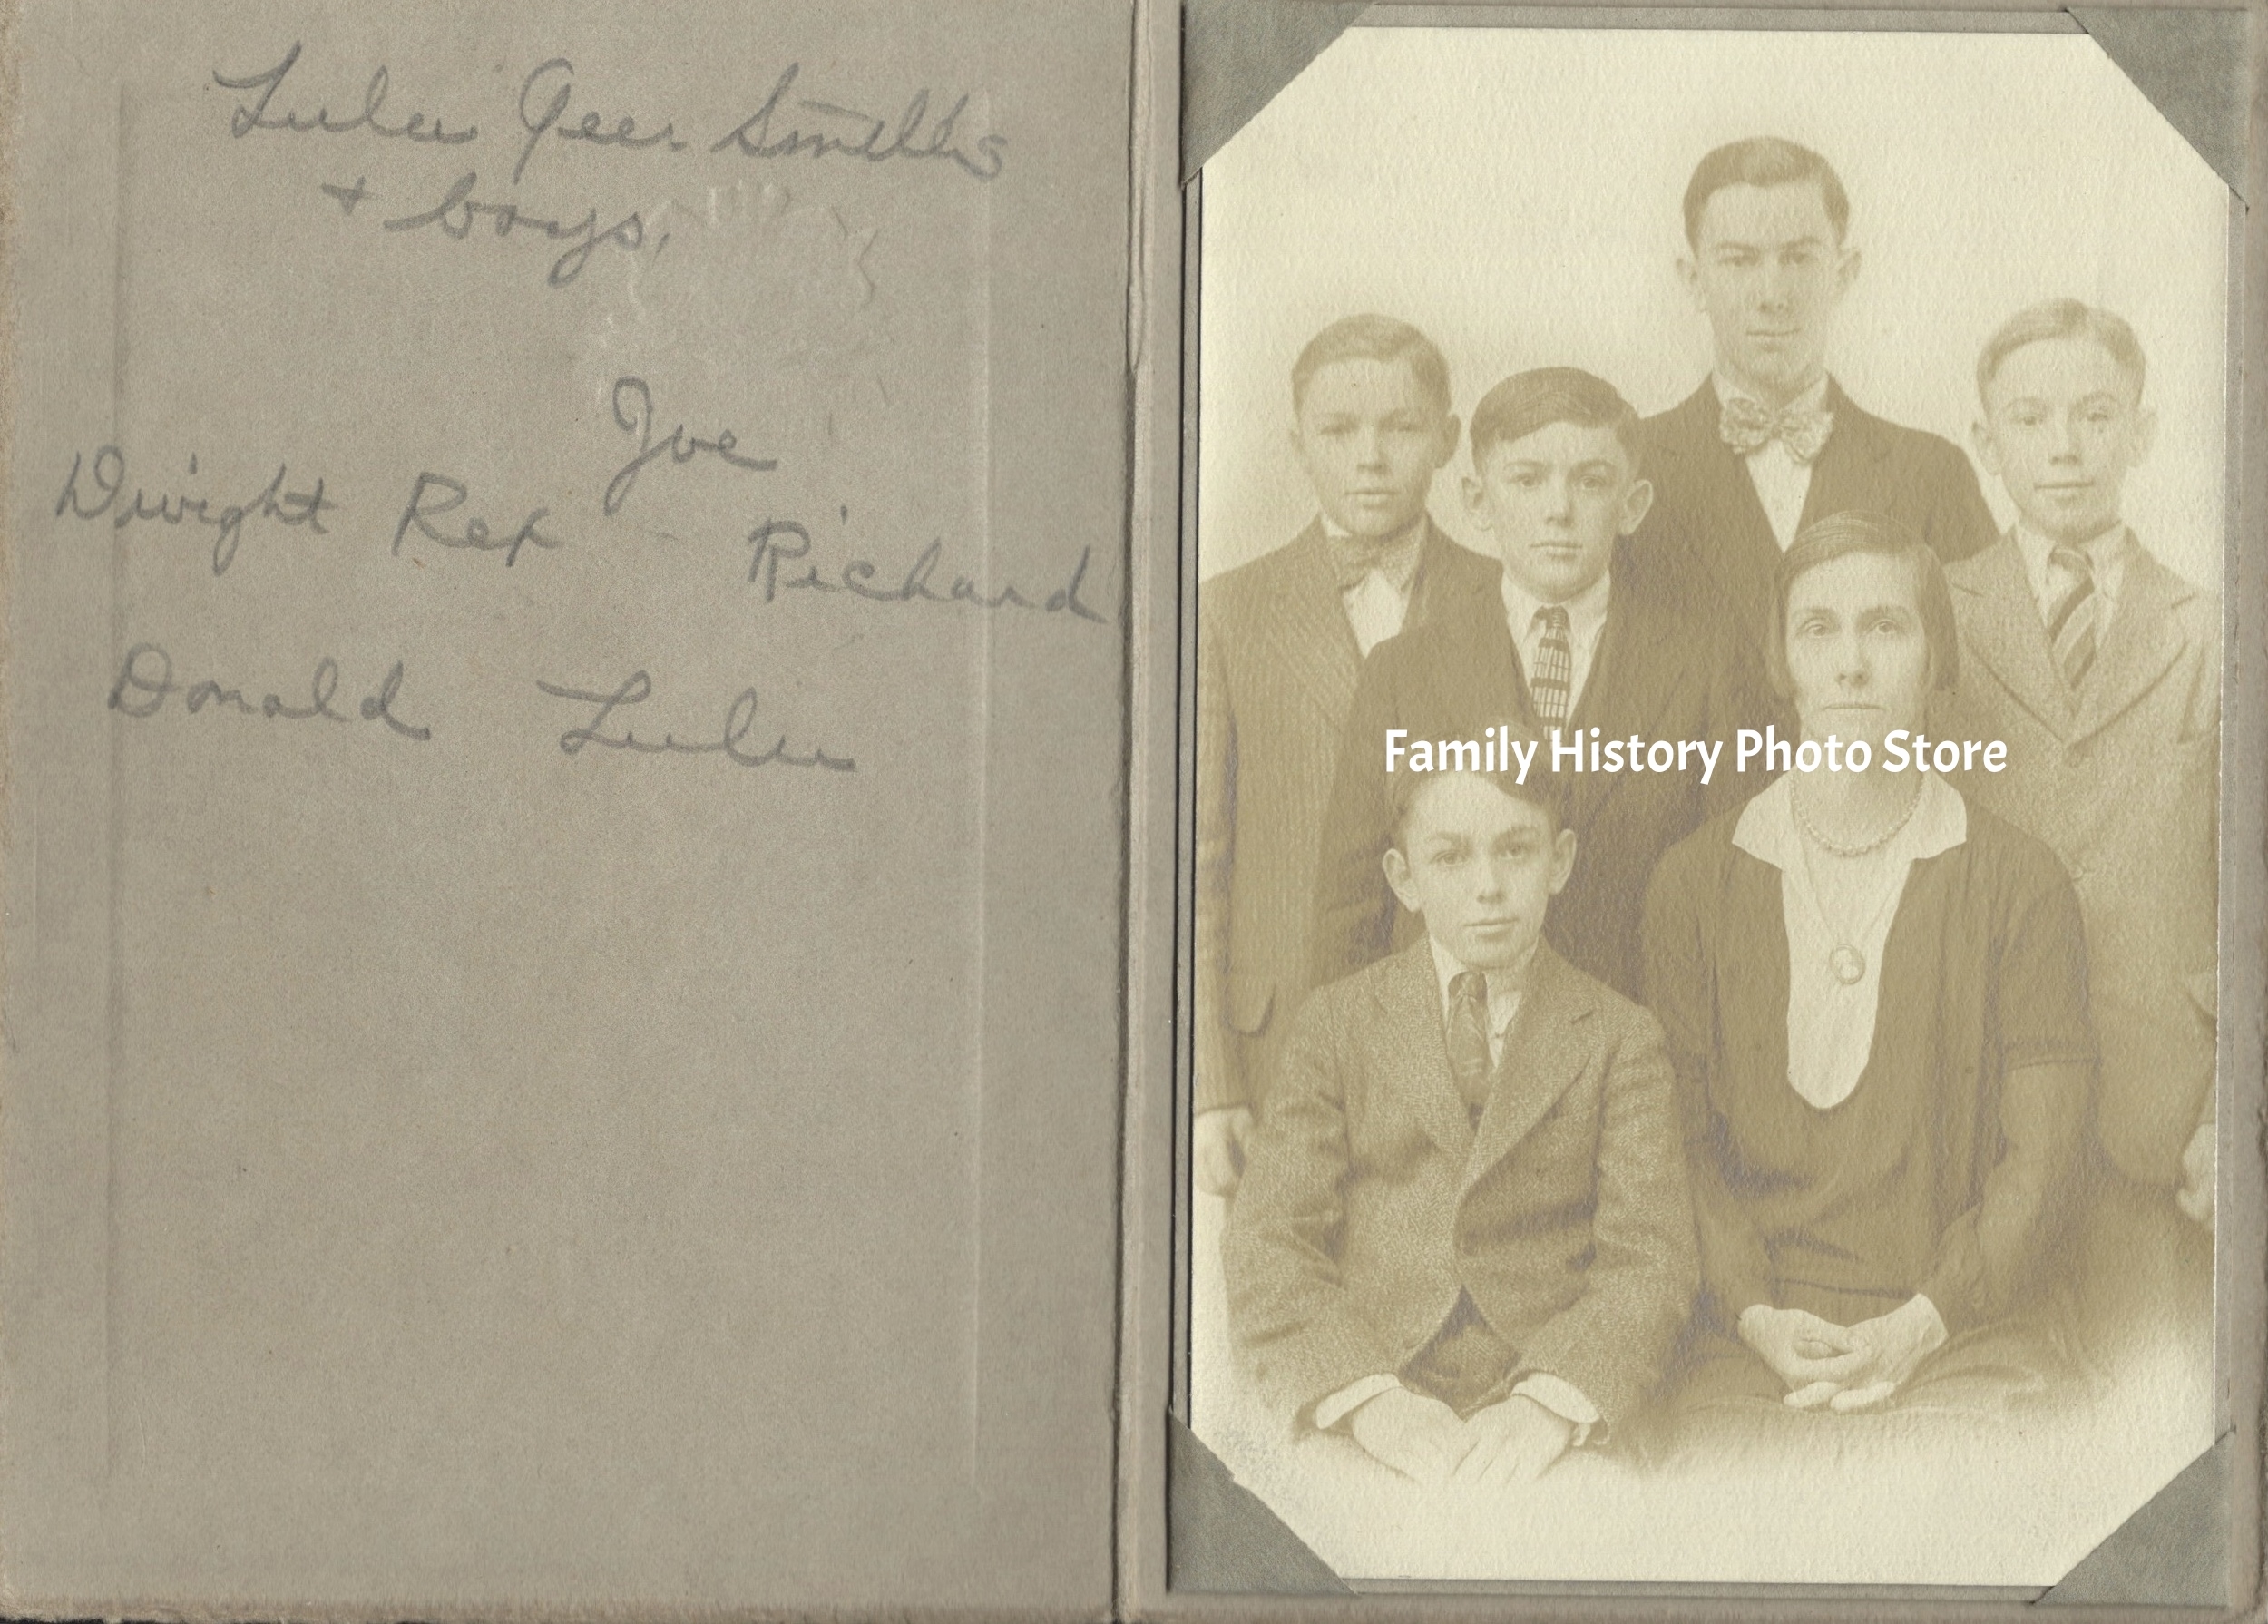 Lulu Geer Smith
+ boys.
Joe
Dwight Rex Richard
Donald Lulu
Family History Photo Store